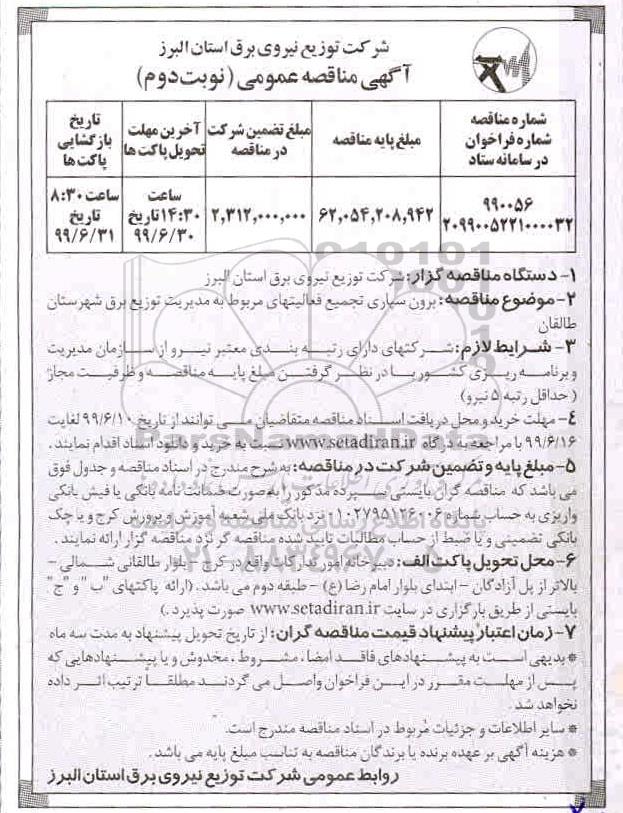 شرکت توزیع نیروی برق استان البرز
آگهی مناقصه عمومی (نوبت دوم)
شماره مناقصه شماره فراخوان در سامانه ستاد | مبلغ پایه مناقصه | مبلغ تضمین شرکت در مناقصه | آخرین مهلت تحویل پاکت ها | تاریخ بازگشایی پاکت ها
۹۹۰۰۵۶ ۲۰۹۹۰۰۵۲۲۱۰۰۰۰۳۲ | ۶۲,۰۵۴,۲۰۸,۹۴۲ | ۲,۳۱۲,۰۰۰,۰۰۰ | ساعت ۱۴:۳۰ تاریخ ۹۹/۶/۳۰ | ساعت ۸:۳۰ تاریخ ۹۹/۶/۳۱
۱- دستگاه مناقصه گزار: شرکت توزیع نیروی برق استان البرز
۲- موضوع مناقصه: برون سپاری تجمیع فعالیتهای مربوط به مدیریت توزیع برق شهرستان
طالقان
۳- شرایط لازم: شرکتهای دارای رتبه بندی معتبر نیرو از سازمان مدیریت
و برنامه ریزی کشور با در نظر گرفتن مبلغ پایه مناقصه و ظرفیت مجاز
( حداقل رتبه ۵ نیرو)
۴- مهلت خرید و محل دریافت اسناد مناقصه متقاضیان می توانند از تاریخ ۹۹/۶/۱۰ لغایت
۹۹/۶/۱۶ با مراجعه به درگاه www.setadiran.ir نسبت به خرید و دانلود اسناد اقدام نمایند .
۵- مبلغ پایه و تضمین شرکت در مناقصه: به شرح مندرج در اسناد مناقصه و جدول فوق
می باشد که مناقصه گران بایستی سپرده مذکور را به صورت ضمانت نامه بانکی یا فیش بانکی
واریزی به حساب شماره ۰۱۰۲۷۹۵۱۲۶۰۰۶ نزد بانک ملی شعبه آموزش و پرورش کرج و یا چک
بانکی تضمینی و یا ضبط از حساب مطالبات تایید شده مناقصه گر نزد مناقصه گزار ارائه نمایند .
۶- محل تحویل پاکت الف: دبیرخانه امور تدارکات واقع در کرج – بلوار طالقانی شمالی –
بالاتر از پل آزادگان – ابتدای بلوار امام رضا (ع) – طبقه دوم می باشد . (ارائه پاکتهای "ب" و "ج"
بایستی از طریق بارگزاری در سایت www.setadiran.ir صورت پذیرد .)
۷- زمان اعتبار پیشنهاد قیمت مناقصه گران: از تاریخ تحویل پیشنهاد به مدت سه ماه
* بدیهی است به پیشنهادهای فاقد امضا ، مشروط ، مخدوش و یا پیشنهادهایی که
پس از مهلت مقرر در این فراخوان واصل می گردند مطلقا ترتیب اثر داده
نخواهد شد .
* سایر اطلاعات و جزئیات مربوط در اسناد مناقصه مندرج است.
* هزینه آگهی بر عهده برنده یا برندگان مناقصه به تناسب مبلغ پایه می باشد .
روابط عمومی شرکت توزیع نیروی برق استان البرز